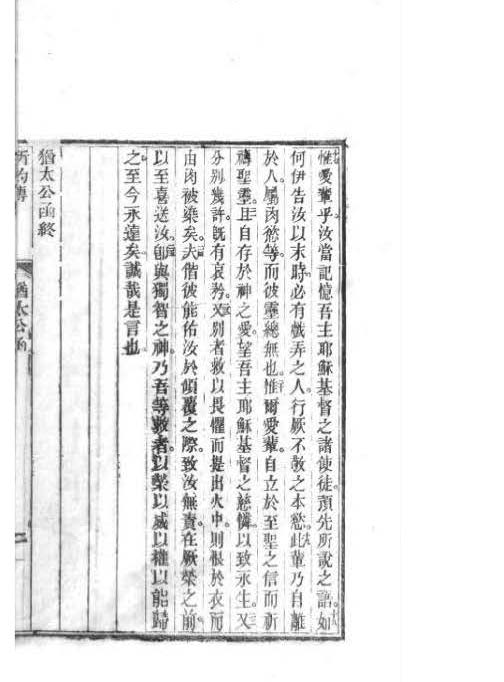 惟愛輩乎汝當記憶吾主耶穌基督之諸使徒預先所說之語如
何伊告汝以末時必有戲弄之人行厥不敬之本慾此輩乃自離
於人屬肉慾等而彼靈總無也惟爾愛輩自立於至聖之信而祈
禱聖靈且自存於神之愛望吾主耶穌基督之慈憐以致永生又
分別幾許既有哀矜又別者救以畏懼而提出火中則恨於衣而
由肉被染矣夫偕彼能佑汝於傾覆之際致汝無責在厥榮之前
以至喜送汝卽與獨智之神乃吾等救者以榮以威以權以能歸
之至今永遠矣誠哉是言也
猶太公函終
猶太公函
二